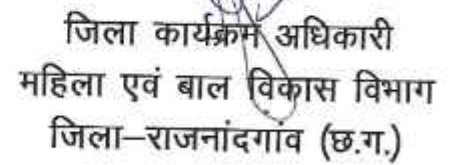 जिला कार्यक्रम अधिकारी
महिला एवं बाल विकास विभाग
जिला–राजनांदगांव (छ.ग.)